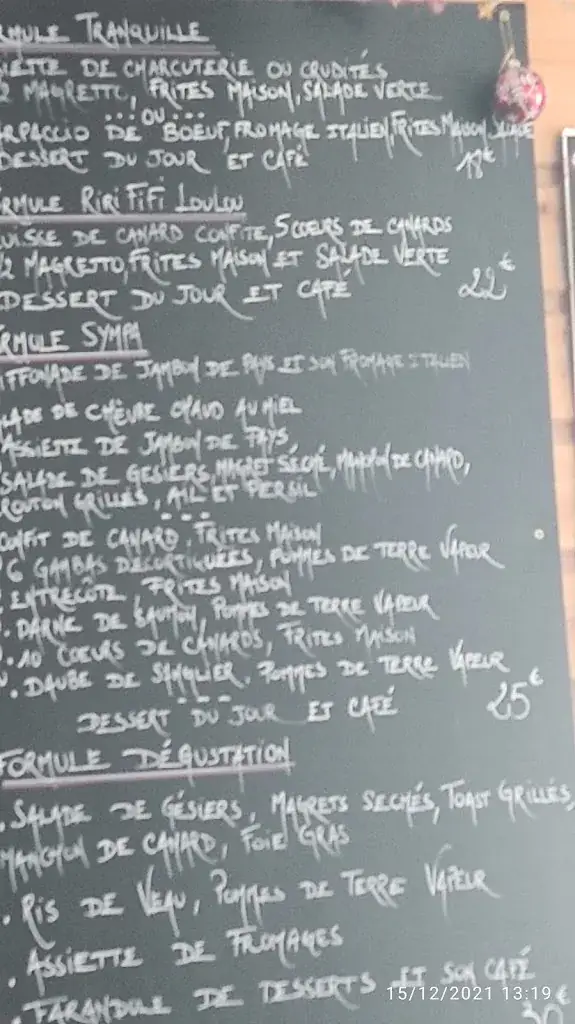 RMULE TRANQUILLE
IETTE DE CHARCUTERIE OU CRUDITÉS
2 MAGRETTO, FRITES MAISON, SALADE VERTE
... OU ...
RPACCIO DE BOEUF, FROMAGE ITALIEN, FRITES MAISON SALADE
DESSERT DU JOUR ET CAFÉ 18€
RMULE RIRI FIFI LOULOU
UISSE DE CANARD CONFITE, 5 COEURS DE CANARDS
/2 MAGRETTO, FRITES MAISON ET SALADE VERTE
DESSERT DU JOUR ET CAFÉ 22€
RMULE SYMPA
IFFONADE DE JAMBON DE PAYS ET SON FROMAGE ITALIEN
LADE DE CHÈVRE CHAUD AU MIEL
ASSIETTE DE JAMBON DE PAYS,
SALADE DE GESIERS, MAGRET SÉCHÉ, MANCHON DE CANARD,
ROUTON GRILLÉS, AIL ET PERSIL
...
ONFIT DE CANARD, FRITES MAISON
6 GAMBAS DÉCORTIQUÉES, POMMES DE TERRE VAPEUR
ENTRECÔTE, FRITES MAISON
. DARNE DE SAUMON, POMMES DE TERRE VAPEUR
. 10 COEURS DE CANARDS, FRITES MAISON
. DAUBE DE SANGLIER, POMMES DE TERRE VAPEUR
...
DESSERT DU JOUR ET CAFÉ 25€
FORMULE DÉGUSTATION
. SALADE DE GÉSIERS, MAGRETS SECHÉS, TOAST GRILLÉS,
MANCHON DE CANARD, FOIE GRAS
. RIS DE VEAU, POMMES DE TERRE VAPEUR
. ASSIETTE DE FROMAGES
. FARANDOLE DE DESSERTS ET SON CAFÉ
30€
15/12/2021 13:19